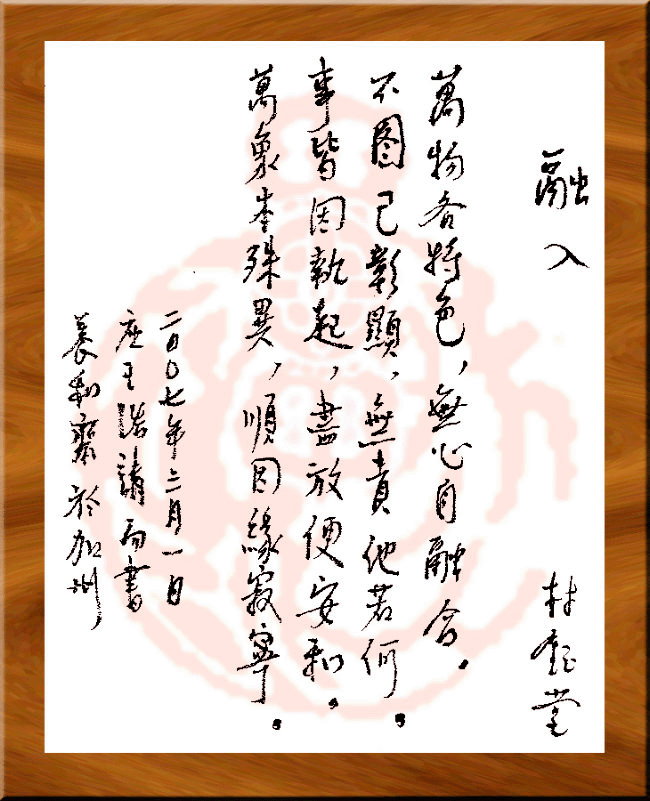 融入
林鈺堂
萬物各特色，無心自融合。
不图己彰顯，無責他若何。
事皆因執起，盡放便安和。
萬象本殊異，順因緣寂寧。
二〇〇七年三月一日
应王浩請而書
養和齋於加州